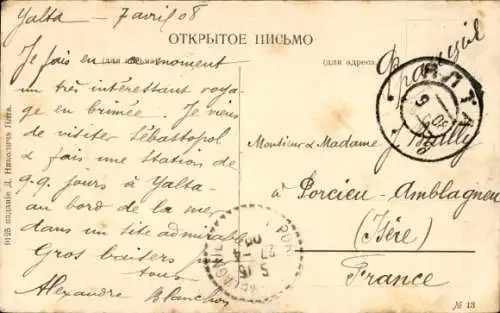 Yalta - 7 avril 08
ОТКРЫТОЕ ПИСЬМО
(для адреса)
Франція
Je fais en ce moment
un très intéressant voya-
ge en Crimée. Je viens
de visiter Sébastopol
& fais une station de
q.q. jours à Yalta
au bord de la mer
dans un site admirable
Gros baisers pour
tous
Alexandre Blanchon
Monsieur & Madame J Bailly
à Porcieu-Amblagnieu
(Isère)
France
9125 изданіе Д. Николича Ялта.
ЯЛТА
№ 13